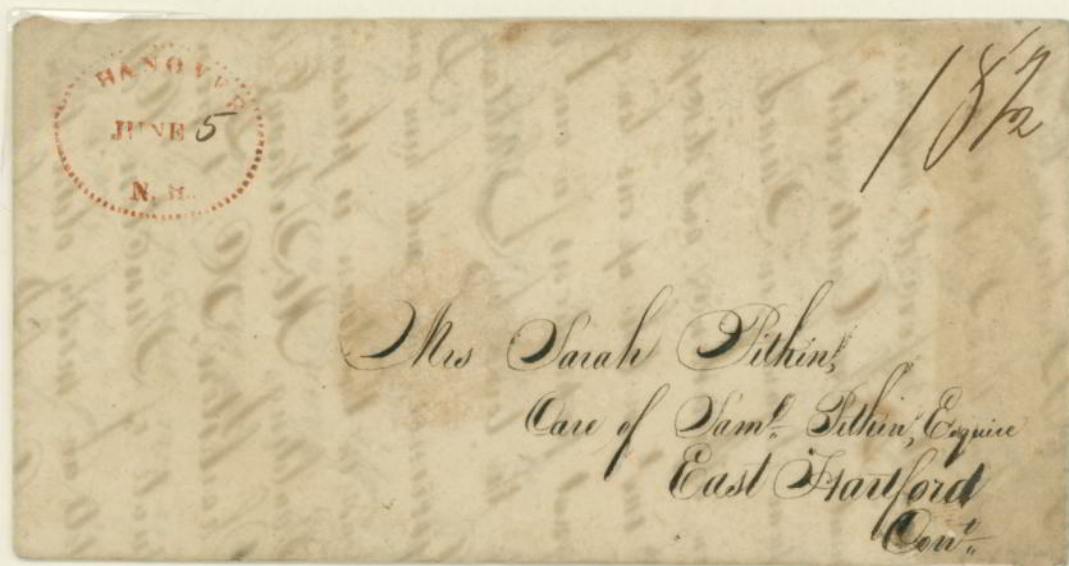 HANOVER
JUNE 5
N. H.
18 1/2
Mrs Sarah Pitkin,
Care of Saml. Pitkin, Esquire
East Hartford
Cont.